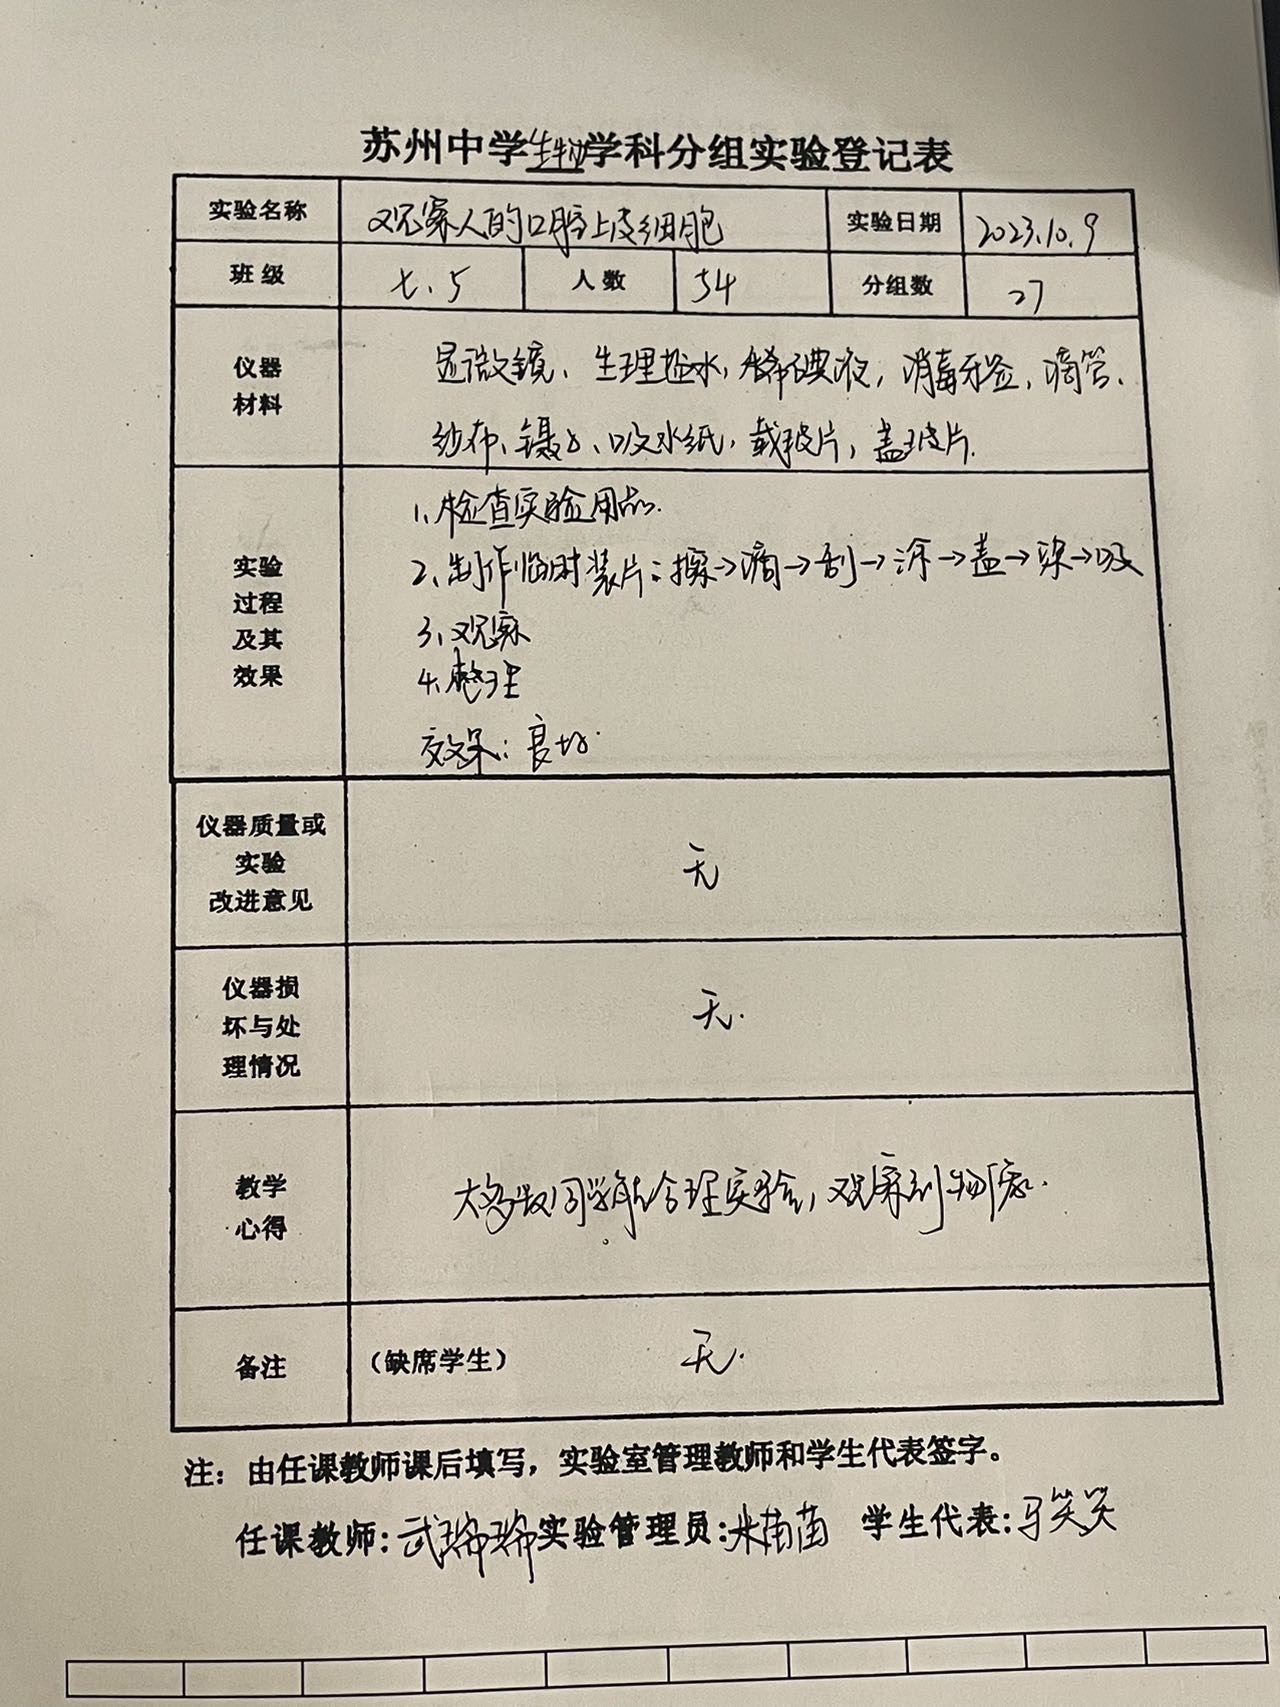 苏州中学生物学科分组实验登记表
实验名称 观察人的口腔上皮细胞 实验日期 2023.10.9
班级 七、5 人数 54 分组数 27
仪器
材料
显微镜、生理盐水,稀碘液,消毒牙签,滴管、
纱布、镊子、吸水纸,载玻片,盖玻片.
实验
过程
及其
效果
1、检查实验用品.
2、制作临时装片:擦→滴→刮→涂→盖→染→吸
3、观察
4、整理
效果:良好.
仪器质量或
实验
改进意见
无
仪器损
坏与处
理情况
无.
教学
心得
大多数同学能合理实验,观察到物像.
备注 (缺席学生) 无.
注:由任课教师课后填写,实验室管理教师和学生代表签字。
任课教师:武瑞瑞 实验管理员:米苗苗 学生代表:马笑笑